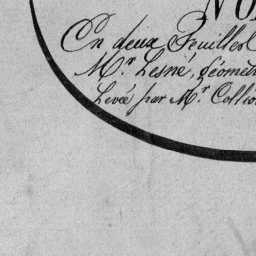 NO
En deux Feuilles
Mr. Lesné, Géomèt
Levée par Mr. Collio